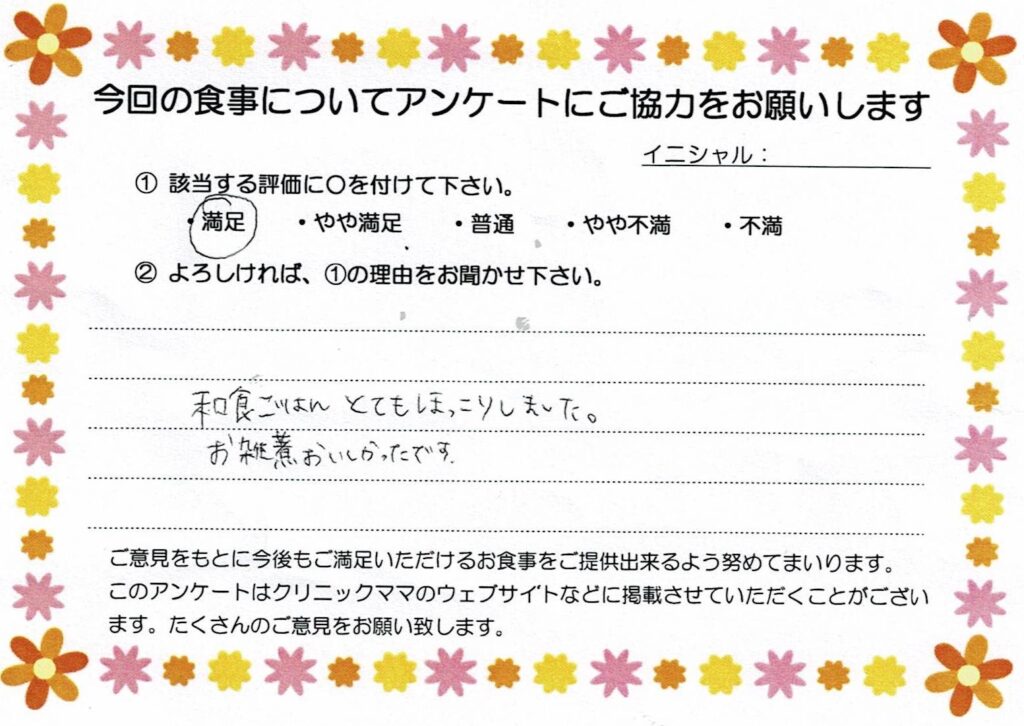 今回の食事についてアンケートにご協力をお願いします
イニシャル：
① 該当する評価に〇を付けて下さい。
・満足 ・やや満足 ・普通 ・やや不満 ・不満
② よろしければ、①の理由をお聞かせ下さい。
和食ごはん とてもほっこりしました。
お雑煮おいしかったです。
ご意見をもとに今後もご満足いただけるお食事をご提供出来るよう努めてまいります。
このアンケートはクリニックママのウェブサイトなどに掲載させていただくことがござい
ます。たくさんのご意見をお願い致します。